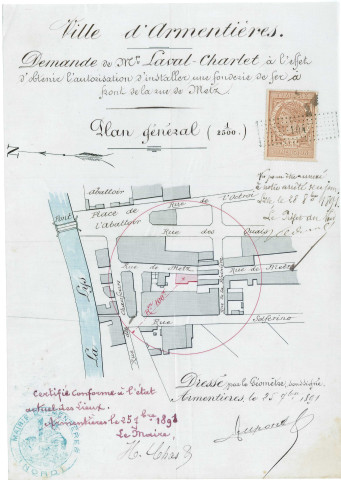 Ville d'Armentières.
Demande de Mr Laval-Charlet à l'effet
d'obtenir l'autorisation d'installer une fonderie de fer à
front de la rue de Metz.
Plan général (1/2500).
N
Vu pour être annexé
à notre arrêté de ce jour
Lille, le 28 8bre 1891
Le Préfet du
Abattoir
Place de
l'abattoir
Rue de l'octroi
Rue des Quais
Pont
Rue de Metz
Rue de Metz
Rue Solférino
La Lys
Certifié conforme à l'état
actuel des lieux.
Armentières le 25 7bre 1891
Le Maire,
Dressé par le Géomètre, soussigné
Armentières, le 25 7bre 1891
Dupont
MAIRIE D'ARMENTIÈRES
NORD